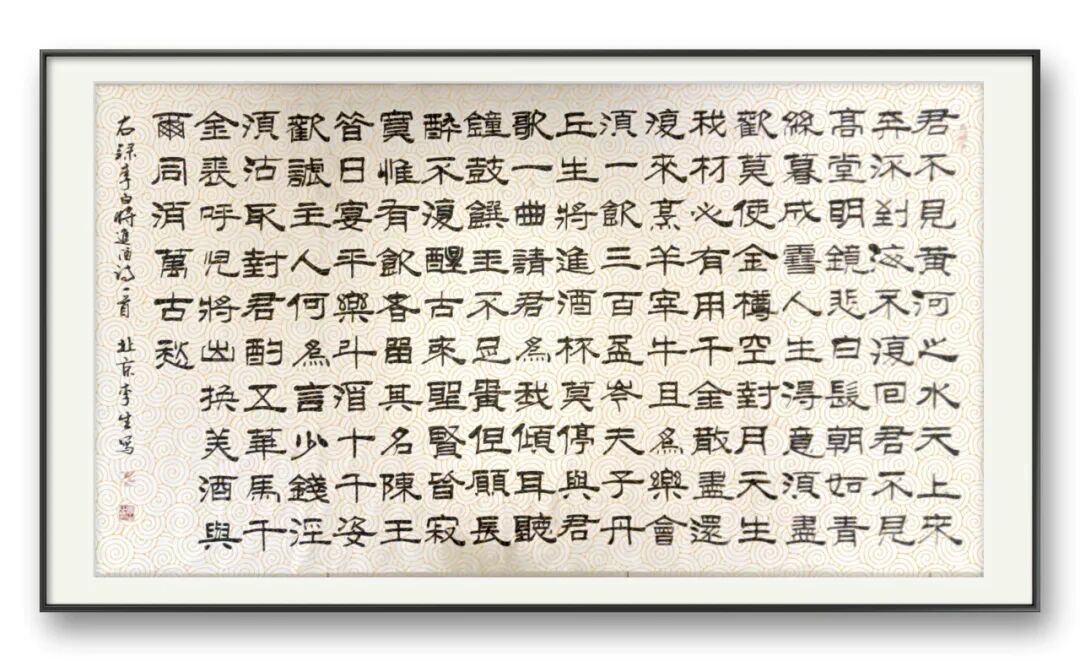 君不見黃河之水天上來
奔流到海不復回君不見
高堂明鏡悲白髮朝如青
絲暮成雪人生得意須盡
歡莫使金樽空對月天生
我材必有用千金散盡還
復來烹羊宰牛且為樂會
須一飲三百盃岑夫子丹
丘生將進酒杯莫停與君
歌一曲請君為我傾耳聽
鐘鼓饌玉不足貴但願長
醉不復醒古來聖賢皆寂
寞惟有飲者留其名陳王
昔日宴平樂斗酒十千恣
歡謔主人何為言少錢涇
須沽取對君酌五華馬千
金裘呼兒將出換美酒與
爾同消萬古愁
右錄李白將進酒詩一首 北京李生寫